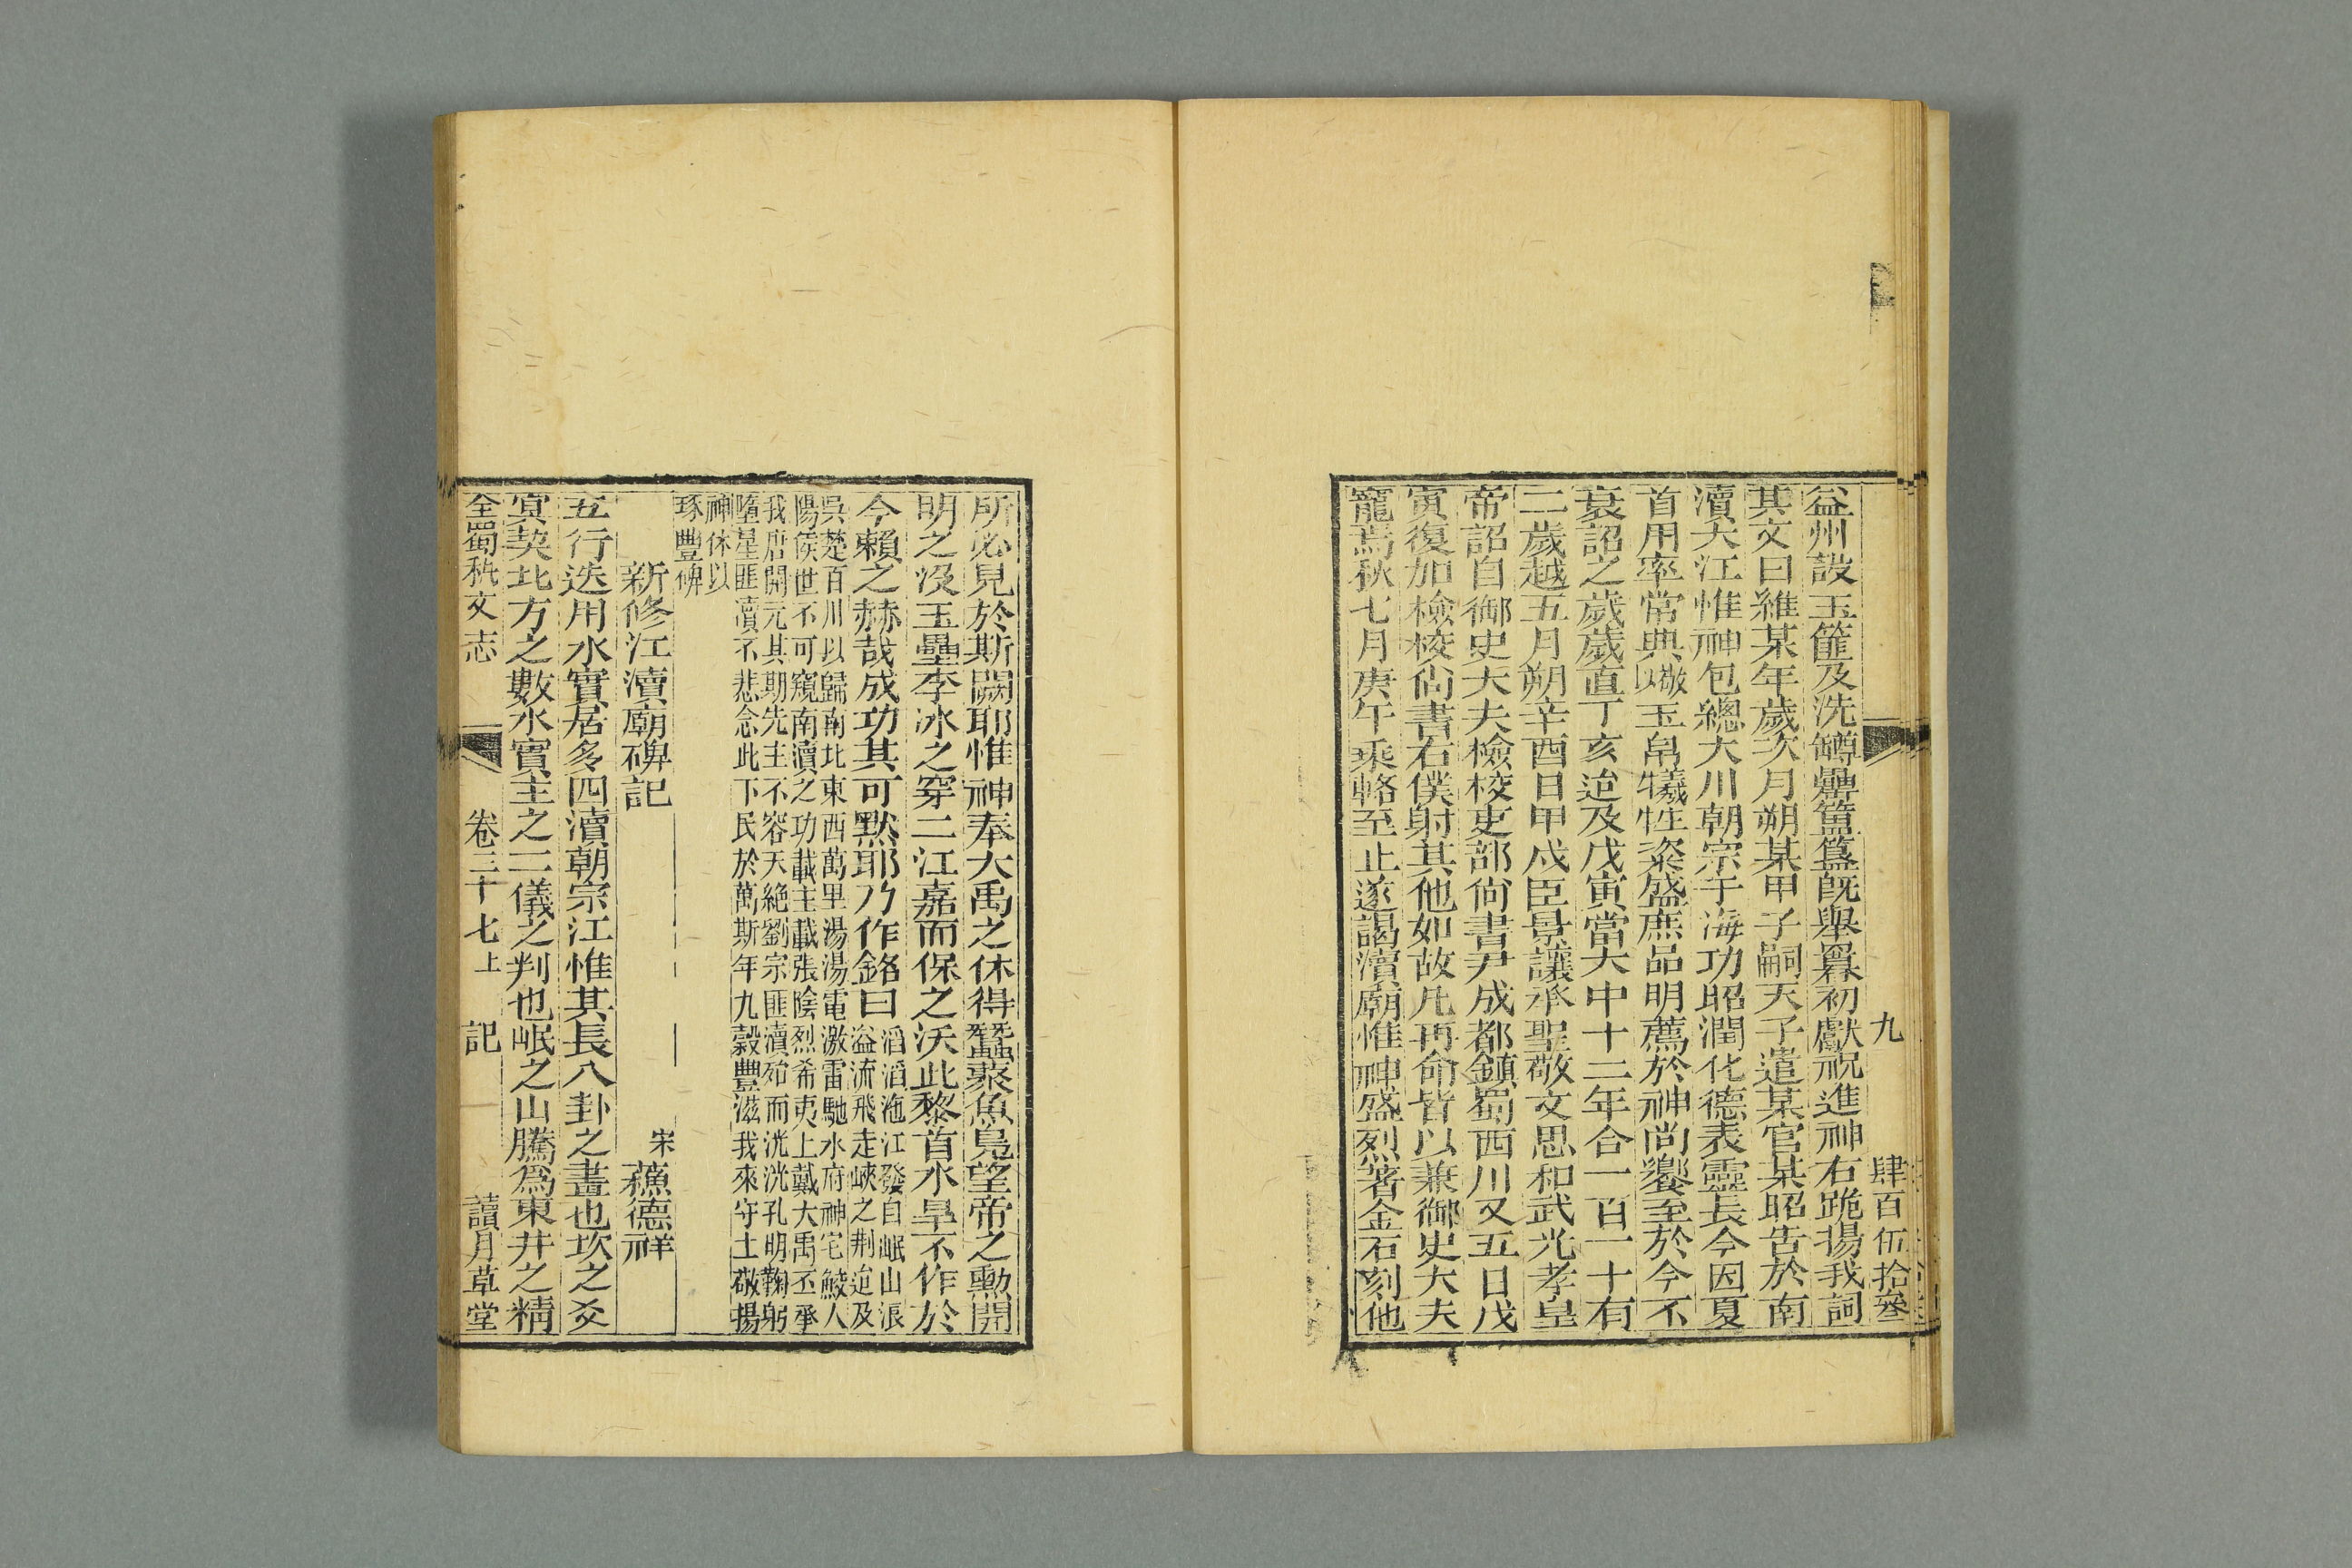 九　肆百伍拾叄
益州設玉篚及洗罇罍簠簋旣舉羃初獻祝進神右跪揚我詞
其文曰維某年歲次月朔某甲子嗣天子遣某官某昭告於南
瀆大江惟神包總大川朝宗于海功昭潤化德表靈長今因夏
首用率常典敬以玉帛犧牲粢盛庶品明薦於神尚饗至於今不
衰詔之歲歲直丁亥迨及戊寅當大中十二年合一百一十有
二歲越五月朔辛酉日甲戌臣景讓承聖敬文思和武光孝皇
帝詔自御史大夫檢校吏部尙書尹成都鎮蜀西川又五日戊
寅復加檢校尙書右僕射其他如故凡再命皆以兼御史大夫
寵焉秋七月庚午乘輅至止遂謁瀆廟惟神盛烈著金石刻他
所必見於斯闕耶惟神奉大禹之休得蠶叢魚鳧望帝之勳開
明之沒玉壘李冰之穿二江嘉而保之沃此黎首水旱不作於
今賴之赫哉成功其可默耶乃作銘曰滔滔沲江發自岷山漲
溢流飛走峽之荆迨及
吳楚百川以歸南北東西萬里湯湯電激雷馳水府神宅鮻人
陽侯世不可窺南瀆之功載主載張陰烈希夷上戴大禹丕承
我唐開元其期先主不容天絶劉宗匪瀆殆而洸洸孔明鞠躬
墮星匪瀆不悲念此下民於萬斯年九穀豐滋我來守土敬揚
神休以
琢豐碑
新修江瀆廟碑記　宋蘓德祥
五行迭用水實居多四瀆朝宗江惟其長八卦之畫也坎之爻
寘契北方之數水實主之二儀之判也岷之山騰爲東井之精
全蜀秇文志　卷三十七上　記　讀月草堂